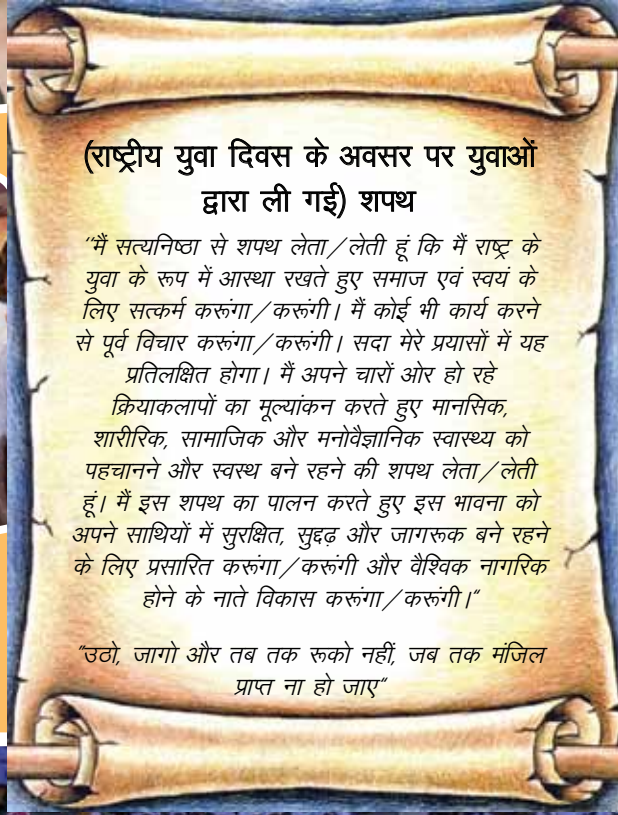 (राष्ट्रीय युवा दिवस के अवसर पर युवाओं
द्वारा ली गई) शपथ
"मैं सत्यनिष्ठा से शपथ लेता/लेती हूं कि मैं राष्ट्र के
युवा के रूप में आस्था रखते हुए समाज एवं स्वयं के
लिए सत्कर्म करूंगा/करूंगी। मैं कोई भी कार्य करने
से पूर्व विचार करूंगा/करूंगी। सदा मेरे प्रयासों में यह
प्रतिलक्षित होगा। मैं अपने चारों ओर हो रहे
क्रियाकलापों का मूल्यांकन करते हुए मानसिक,
शारीरिक, सामाजिक और मनोवैज्ञानिक स्वास्थ्य को
पहचानने और स्वस्थ बने रहने की शपथ लेता/लेती
हूं। मैं इस शपथ का पालन करते हुए इस भावना को
अपने साथियों में सुरक्षित, सुदृढ़ और जागरूक बने रहने
के लिए प्रसारित करूंगा/करूंगी और वैश्विक नागरिक
होने के नाते विकास करूंगा/करूंगी।"
"उठो, जागो और तब तक रूको नहीं, जब तक मंजिल
प्राप्त ना हो जाए"